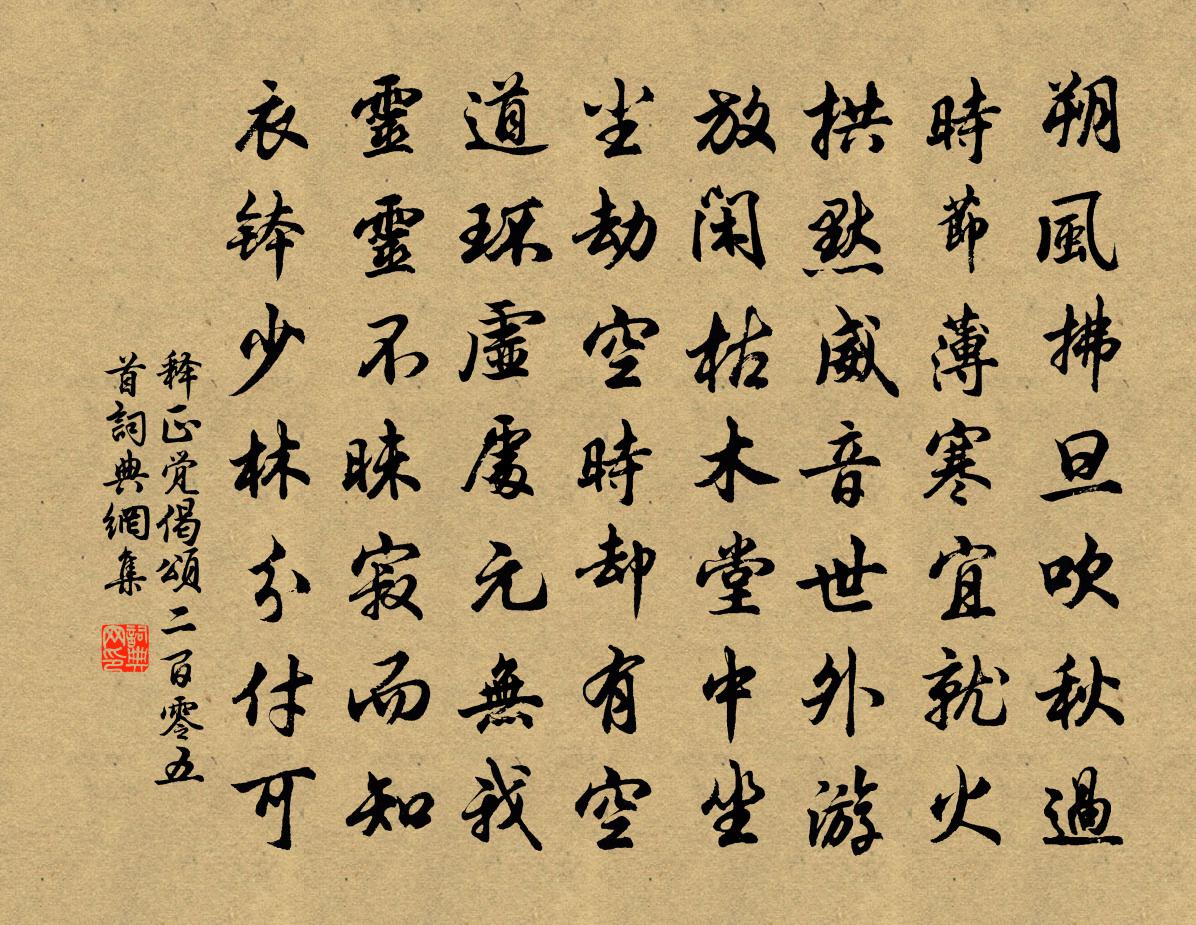 朔風拂旦吹秋過
時節薄寒宜就火
拱默威音世外游
放閑枯木堂中坐
坐劫空時却有空
道環虛處元無我
靈靈不昧寂而知
衣鉢少林分付可
释正觉偈頌二百零五
首詞典網集
詞典网印